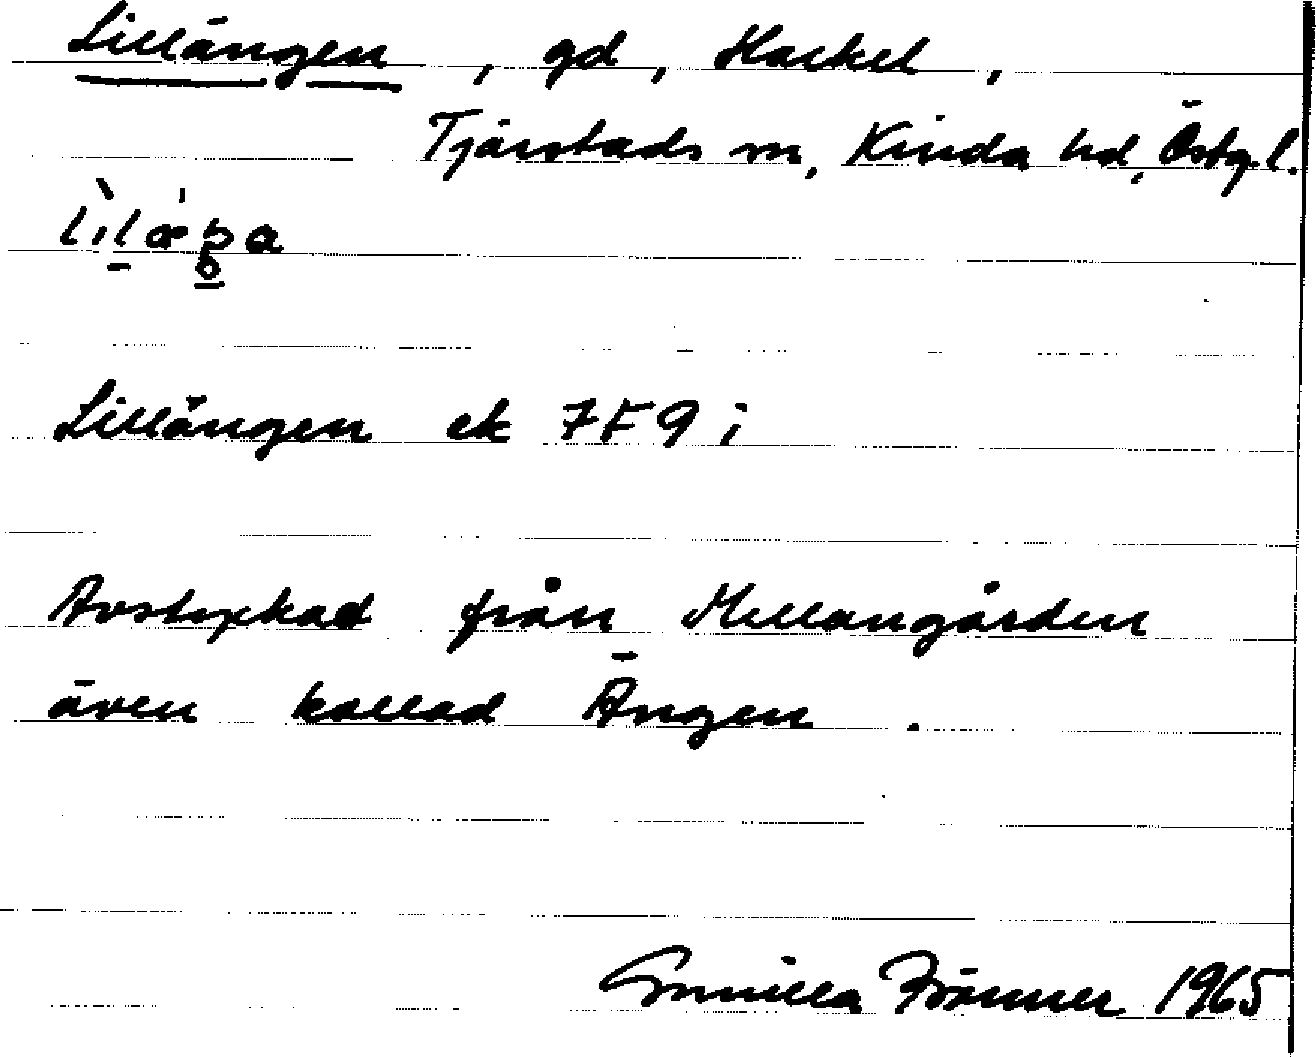 Lillängen, gd, Hackel,
Tjärstads sn, Kinda hd, Östg.l.
Lillängen ek 7F9i
Avstyckad från Mellangården
även kallad Ängen.
Gunilla 1965